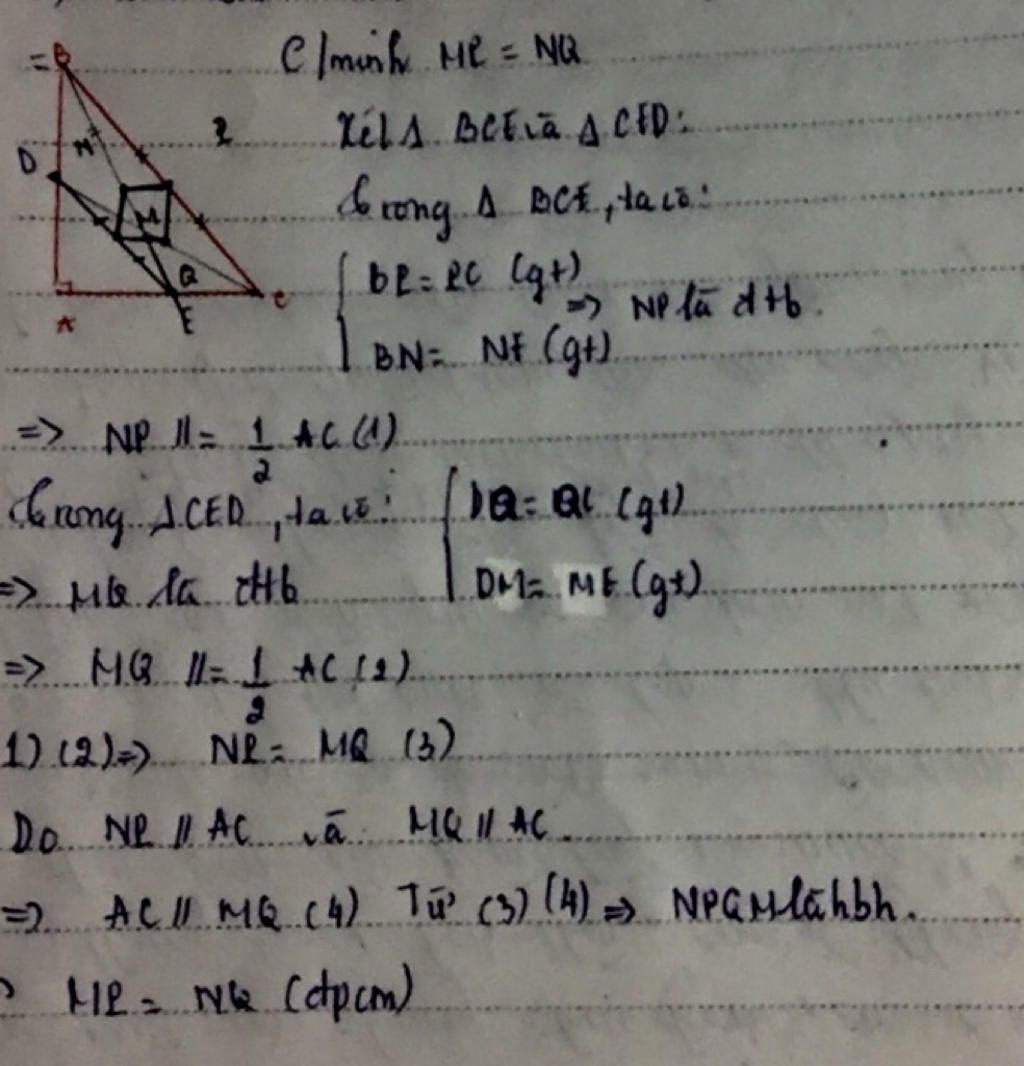 C/minh MP = NQ
Xét Δ BCE và Δ CED:
Trong Δ BCE, ta có:
BP = PC (gt)
=> NP là đtb.
BN = NE (gt)
=> NP //= 1/2 AC (1)
Trong ΔCED, ta có:
DQ = QC (gt)
DM = ME (gt)
=> MQ là đtb
=> MQ //= 1/2 AC (2)
1) (2) => NP = MQ (3)
Do NP // AC và MQ // AC
=> AC // MQ (4) Từ (3) (4) => NPQM là hbh.
MP = NQ (đpcm)
B
D
M
Q
A
E
C